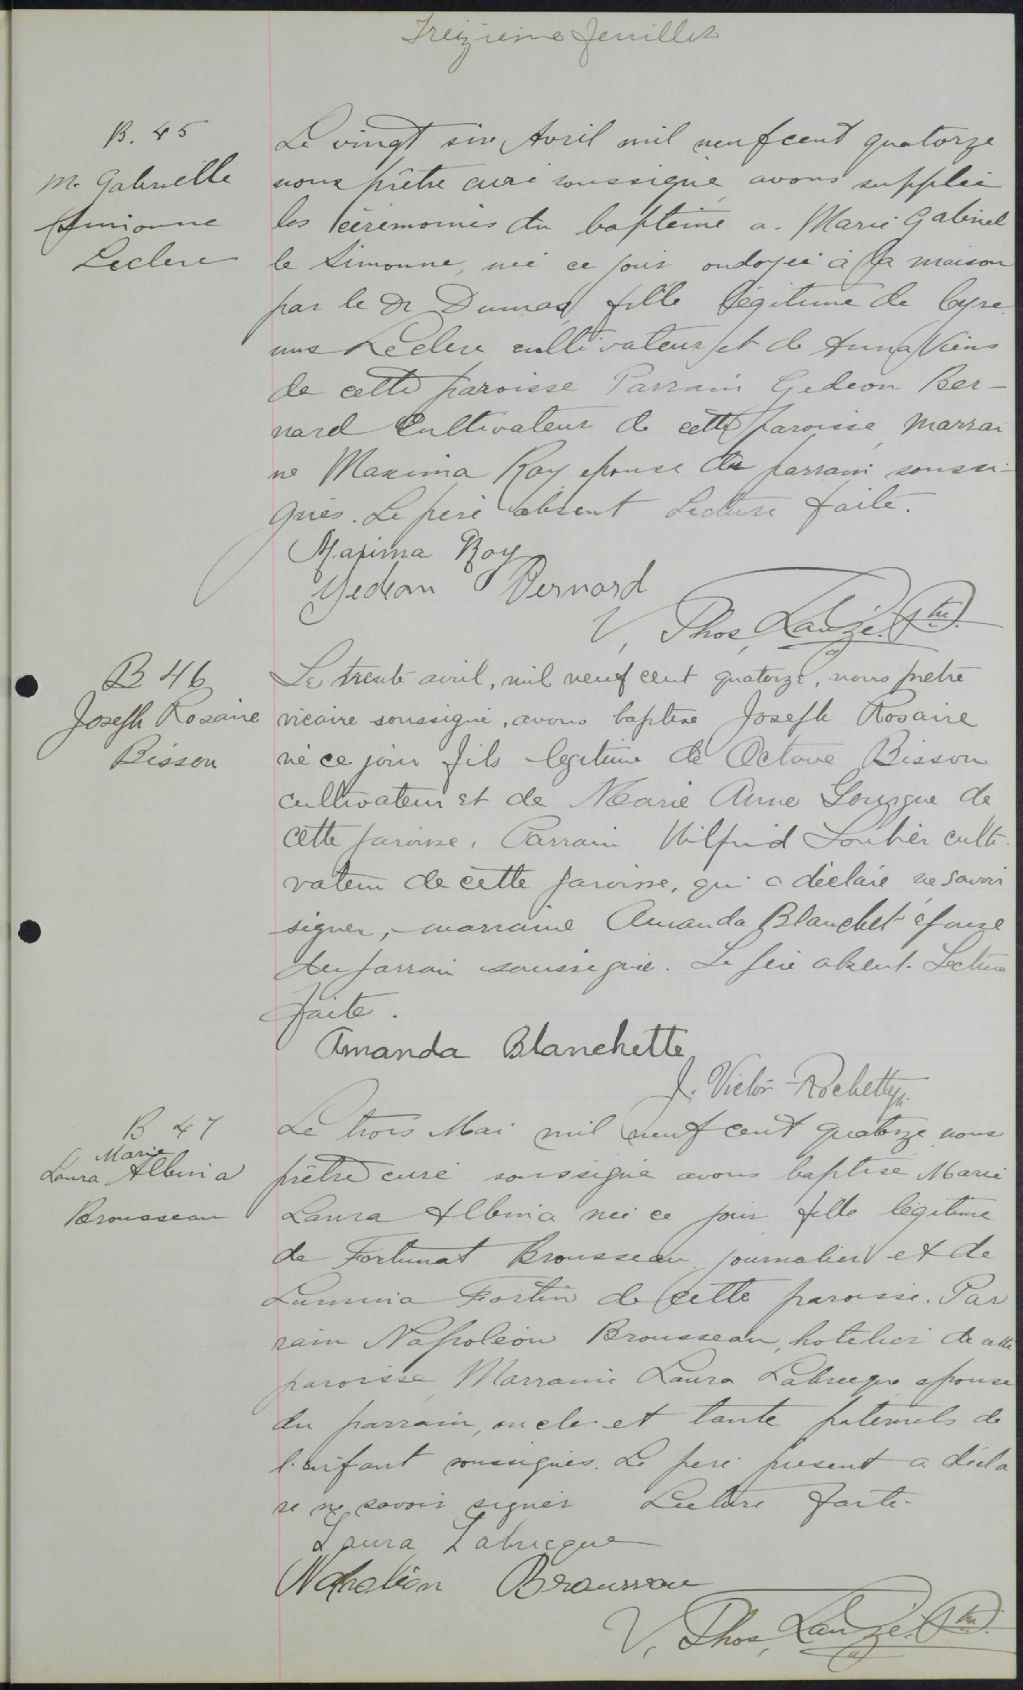 Treizième feuillet
B. 45
M. Gabrielle
Simonne
Leclerc
Le vingt six Avril mil neuf cent quatorze
nous prêtre curé soussigné avons supplée
les cérémonies du baptême a Marie Gabriel
le Simonne, née ce jour ondoyée à la maison
par le Dr Dumas, fille légitime de Cyre
nus Leclerc cultivateur et de Anna Viens
de cette paroisse Parrain Gedeon Ber-
nard Cultivateur de cette paroisse, marrai
ne Maxima Roy épouse du parrain soussi-
gnés. Le père absent Lecture faite.
Maxima Roy
Gedeon Bernard
V. Thos. Lauzé. Ptre.
B 46
Joseph Rosaire
Bisson
Le trente avril, mil neuf cent quatorze, nous prêtre
vicaire soussigné, avons baptisé Joseph Rosaire
né ce jour fils légitime de Octave Bisson
cultivateur et de Marie Anne Gourgue de
cette paroisse. Parrain Wilfrid Loubier culti-
vateur de cette paroisse, qui a déclaré ne savoir
signer, marraine Amanda Blanchet épouse
du parrain soussignée. Le père absent. Lecture
faite.
Amanda Blanchette
J. Victor Rochette
B 47
Marie
Laura Albina
Brousseau
Le trois Mai mil neuf cent quatorze nous
prêtre curé soussigné avons baptisé Marie
Laura Albina née ce jour fille légitime
de Fortunat Brousseau journalier et de
Lumina Fortin de cette paroisse. Par
rain Napoléon Brousseau, hotelier de cette
paroisse, Marraine Laura Labrecque épouse
du parrain, oncle et tante paternels de
l'enfant soussignés. Le père présent a décla
ré ne savoir signer Lecture faite.
Laura Labrecque
Napoléon Brousseau
V. Thos. Lauzé. Ptre.